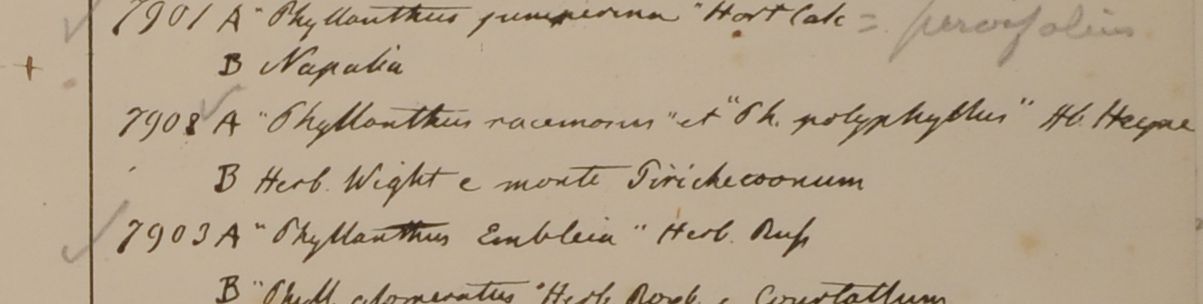 7901 A "Phyllanthus juniperina" Hort Calc = parvifolius
B Napalia
7902 A "Phyllanthus racemosus" et "Ph. polyphyllus" Hb. Heyne
B Herb. Wight e monte Tirichecoonum
7903 A "Phyllanthus Embleia" Herb. Russ
B "Phyll. glomeratus" Herb. Roxb. e Courtallum